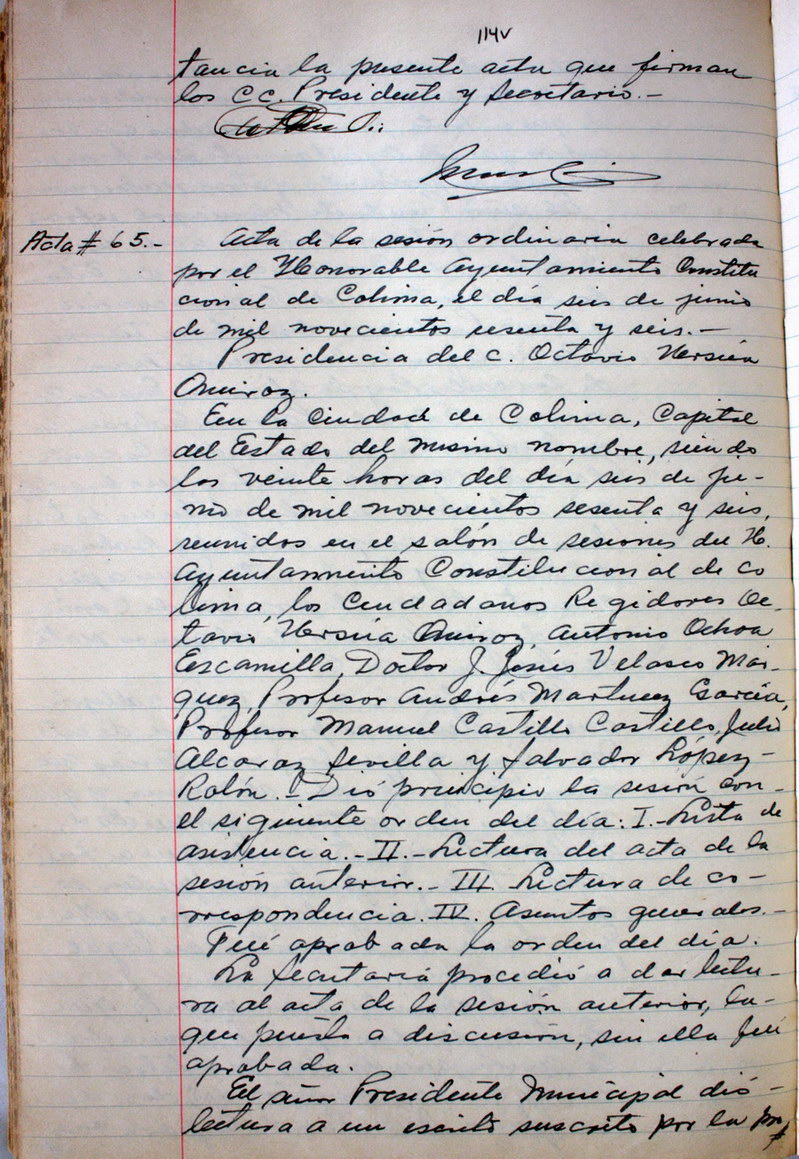 114v
tancia la presente acta que firman
los CC. Presidente y Secretario.-
Acta # 65.-
Acta de la sesión ordinaria celebrada
por el Honorable Ayuntamiento Constitu
cional de Colima, el día seis de junio
de mil novecientos sesenta y seis.-
Presidencia del C. Octavio Ursúa
Quiroz.
En la Ciudad de Colima, Capital
del Estado del mismo nombre, siendo
las veinte horas del día seis de ju-
nio de mil novecientos sesenta y seis,
reunidos en el salón de sesiones del H.
Ayuntamiento Constitucional de Co
lima, los Ciudadanos Regidores Oc-
tavio Ursúa Quiroz, Antonio Ochoa
Escamilla, Doctor J. Jesús Velasco Már-
quez, Profesor Andrés Martínez García,
Profesor Manuel Castillo Castillo, Julio
Alcaraz Sevilla y Salvador López-
Rolón.- Dió principio la sesión con-
el siguiente orden del día: I.- Lista de
asistencia.- II.- Lectura del acta de la
sesión anterior.- III. Lectura de co-
rrespondencia. IV. Asuntos generales.-
Fué aprobada la orden del día.
La Secretaría procedió a dar lectu-
ra al acta de la sesión anterior, la-
que puesta a discusión, sin ella fué
aprobada.
El señor Presidente Municipal dió-
lectura a un escrito suscrito por la